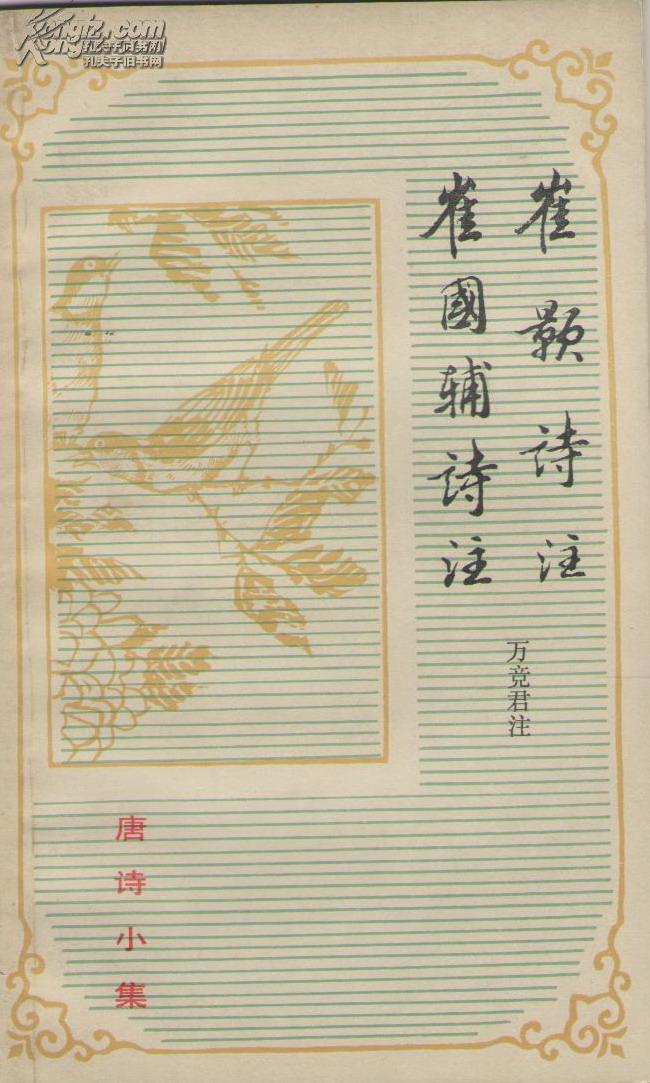 Kongfz.com
孔夫子旧书网
孔夫子旧书网
崔颢詩注
崔國辅詩注
万竞君注
唐诗小集